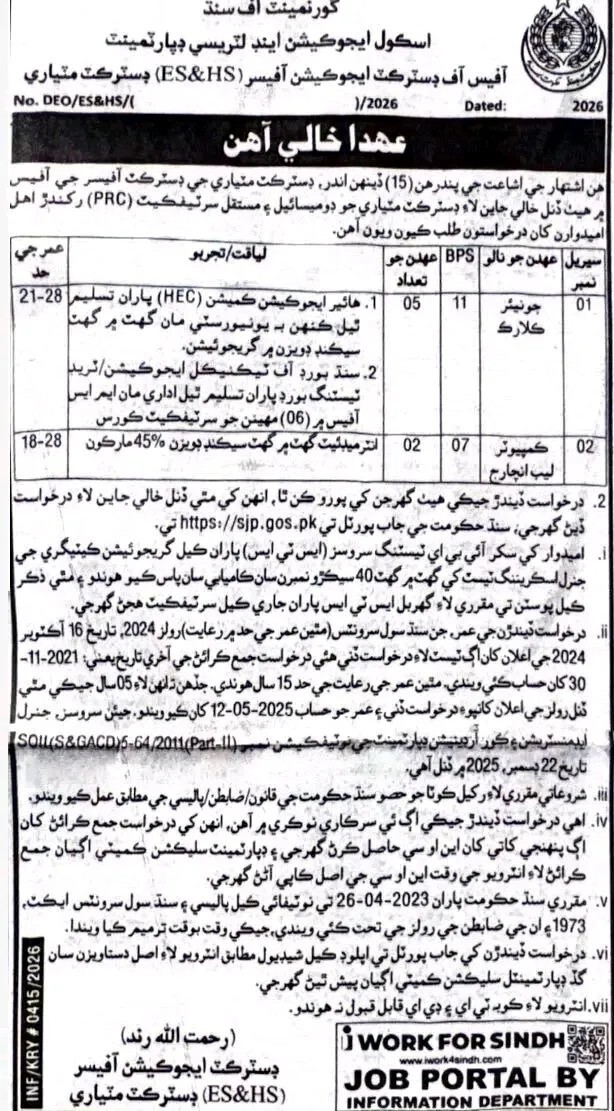 گورنمينٽ آف سنڌ
اسڪول ايجوڪيشن اينڊ لٽريسي ڊپارٽمينٽ
آفيس آف ڊسٽرڪٽ ايجوڪيشن آفيسر (ES&HS) ڊسٽرڪٽ مٽياري
No. DEO/ES&HS/( )/2026 Dated: 2026
عهدا خالي آهن
هن اشتهار جي اشاعت جي پندرهن (15) ڏينهن اندر، ڊسٽرڪٽ مٽياري جي ڊسٽرڪٽ آفيسر جي آفيس
۾ هيٺ ڏنل خالي جاين لاءِ ڊسٽرڪٽ مٽياري جو ڊوميسائيل ۽ مستقل سرٽيفڪيٽ (PRC) رکندڙ اهل
اميدوارن کان درخواستون طلب ڪيون ويون آهن.
سيريل نمبر | عهدن جو نالو | BPS | عهدن جو تعداد | لياقت/تجربو | عمر جي حد
01 | جونيئر ڪلارڪ | 11 | 05 | 1. هائير ايجوڪيشن ڪميشن (HEC) پاران تسليم | 21-28
ٿيل ڪنهن به يونيورسٽي مان گهٽ ۾ گهٽ
سيڪنڊ ڊويزن ۾ گريجوئيشن.
2. سنڌ بورڊ آف ٽيڪنيڪل ايجوڪيشن/ٽريڊ
ٽيسٽنگ بورڊ پاران تسليم ٿيل اداري مان ايم ايس
آفيس ۾ (06) مهينن جو سرٽيفڪيٽ ڪورس
02 | ڪمپيوٽر ليب انچارج | 07 | 02 | انٽرميڊيئيٽ گهٽ ۾ گهٽ سيڪنڊ ڊويزن 45% مارڪون | 18-28
2. درخواست ڏيندڙ جيڪي هيٺ گهرجن کي پورو ڪن ٿا، انهن کي مٿي ڏنل خالي جاين لاءِ درخواست
ڏيڻ گهرجي، سنڌ حڪومت جي جاب پورٽل تي https://sjp.gos.pk تي.
i. اميدوار کي سکر آئي بي اي ٽيسٽنگ سروسز (ايس ٽي ايس) پاران ڪيل گريجوئيشن ڪيٽيگري جي
جنرل اسڪريننگ ٽيسٽ کي گهٽ ۾ گهٽ 40 سيڪڙو نمبرن سان ڪاميابي سان پاس ڪيو هوندو ۽ مٿي ذڪر
ڪيل پوسٽن تي مقرري لاءِ گهربل ايس ٽي ايس پاران جاري ڪيل سرٽيفڪيٽ هجڻ گهرجي.
ii. درخواست ڏيندڙن جي عمر، جن سنڌ سول سرونٽس (مٿين عمر جي حد ۾ رعايت) رولز 2024، تاريخ 16 آڪٽوبر
2024 جي اعلان کان اڳ ٽيسٽ لاءِ درخواست ڏني هئي درخواست جمع ڪرائڻ جي آخري تاريخ يعني: 2021-11-
30 کان حساب ڪئي ويندي. مٿين عمر جي رعايت جي حد 15 سال هوندي. جڏهن ته انهن لاءِ 05 سال جيڪي مٿي
ڏنل رولز جي اعلان کانپوءِ درخواست ڏني ۽ عمر جو حساب 2025-05-12 کان ڪيو ويندو. جيئن سروسز، جنرل
ايڊمنسٽريشن ۽ ڪوآرڊينيشن ڊپارٽمينٽ جي نوٽيفڪيشن نمبر SOII(S&GACD)5-64/2011(Part-II)
تاريخ 22 ڊسمبر، 2025 ۾ ڏنل آهي.
iii. شروعاتي مقرري لاءِ رکيل ڪوٽا جو حصو سنڌ حڪومت جي قانون/ضابطن/پاليسي جي مطابق عمل ڪيو ويندو.
iv. اهي درخواست ڏيندڙ جيڪي اڳ ئي سرڪاري نوڪري ۾ آهن، انهن کي درخواست جمع ڪرائڻ کان
اڳ پنهنجي کاتي کان اين او سي حاصل ڪرڻ گهرجي ۽ ڊپارٽمينٽ سليڪشن ڪميٽي اڳيان جمع
ڪرائڻ لاءِ انٽرويو جي وقت اين او سي جي اصل ڪاپي آڻڻ گهرجي.
v. مقرري سنڌ حڪومت پاران 2023-04-26 تي نوٽيفائي ڪيل پاليسي ۽ سنڌ سول سرونٽس ايڪٽ،
1973 ۽ ان جي ضابطن جي رولز جي تحت ڪئي ويندي، جيڪي وقت بوقت ترميم ڪيا ويندا.
vi. درخواست ڏيندڙن کي جاب پورٽل تي اپلوڊ ڪيل شيڊيول مطابق انٽرويو لاءِ اصل دستاويزن سان
گڏ ڊپارٽمينٽل سليڪشن ڪميٽي اڳيان پيش ٿيڻ گهرجي.
vii. انٽرويو لاءِ ڪو به ٽي اي ۽ ڊي اي قابل قبول نه هوندو.
(رحمت الله رند)
ڊسٽرڪٽ ايجوڪيشن آفيسر
(ES&HS) ڊسٽرڪٽ مٽياري
INF/KRY # 0415/2026
i WORK FOR SINDH
www.iwork4sindh.com
JOB PORTAL BY
INFORMATION DEPARTMENT